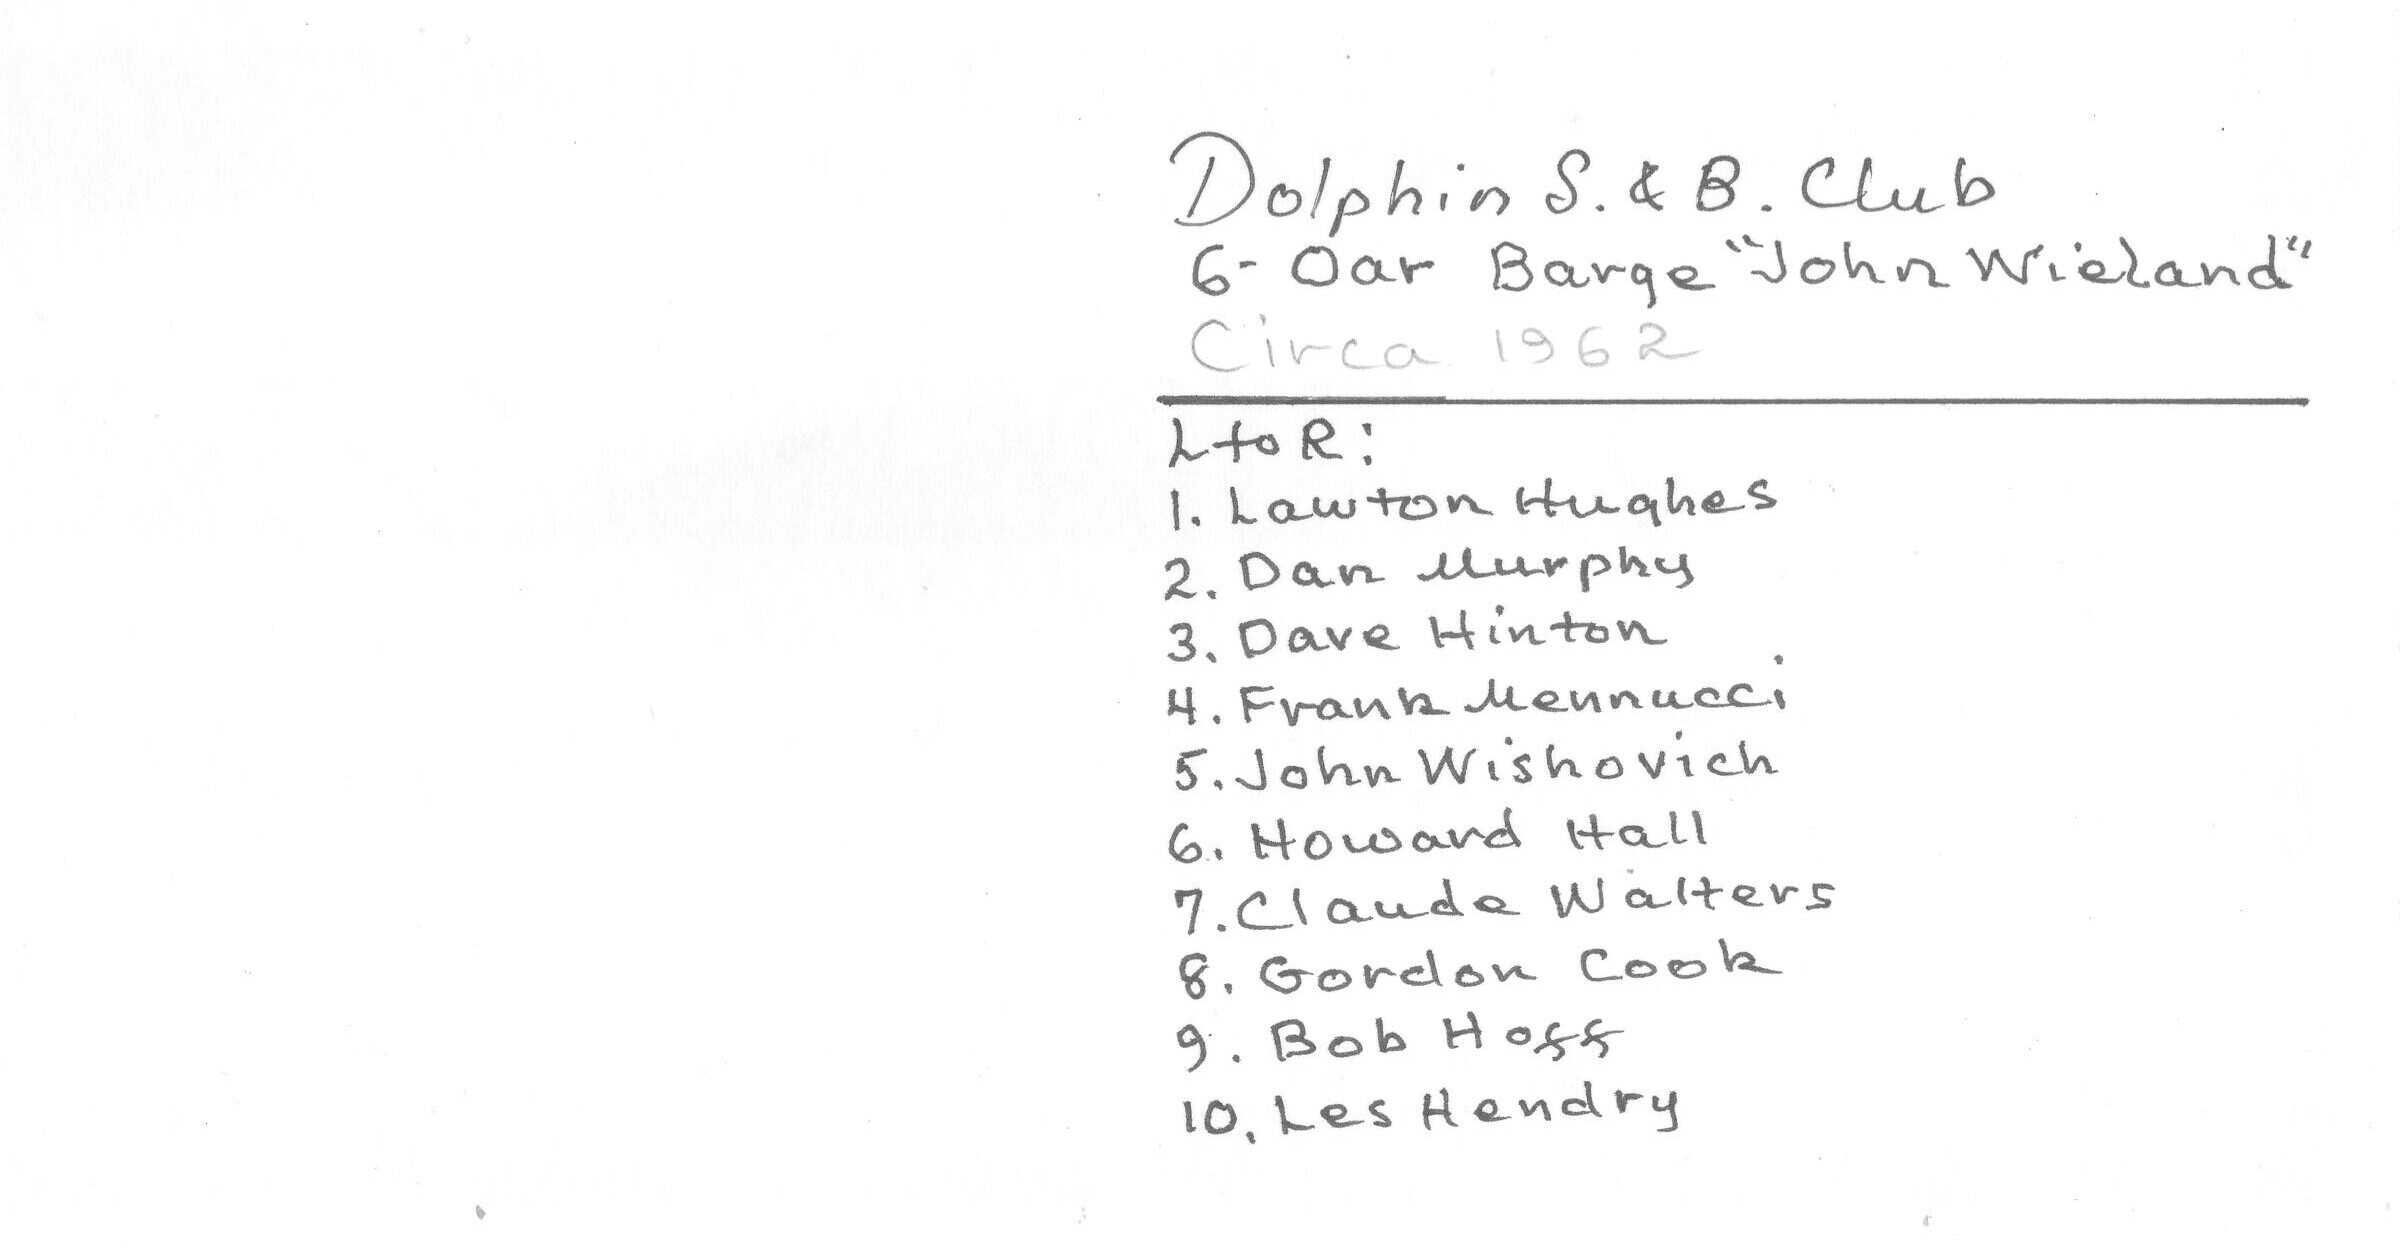 Dolphin S. & B. Club
6-Oar Barge "John Wieland"
Circa 1962
L to R:
1. Lawton Hughes
2. Dan Murphy
3. Dave Hinton
4. Frank Mennucci
5. John Wishovich
6. Howard Hall
7. Claude Walters
8. Gordon Cook
9. Bob Hoff
10. Les Hendry